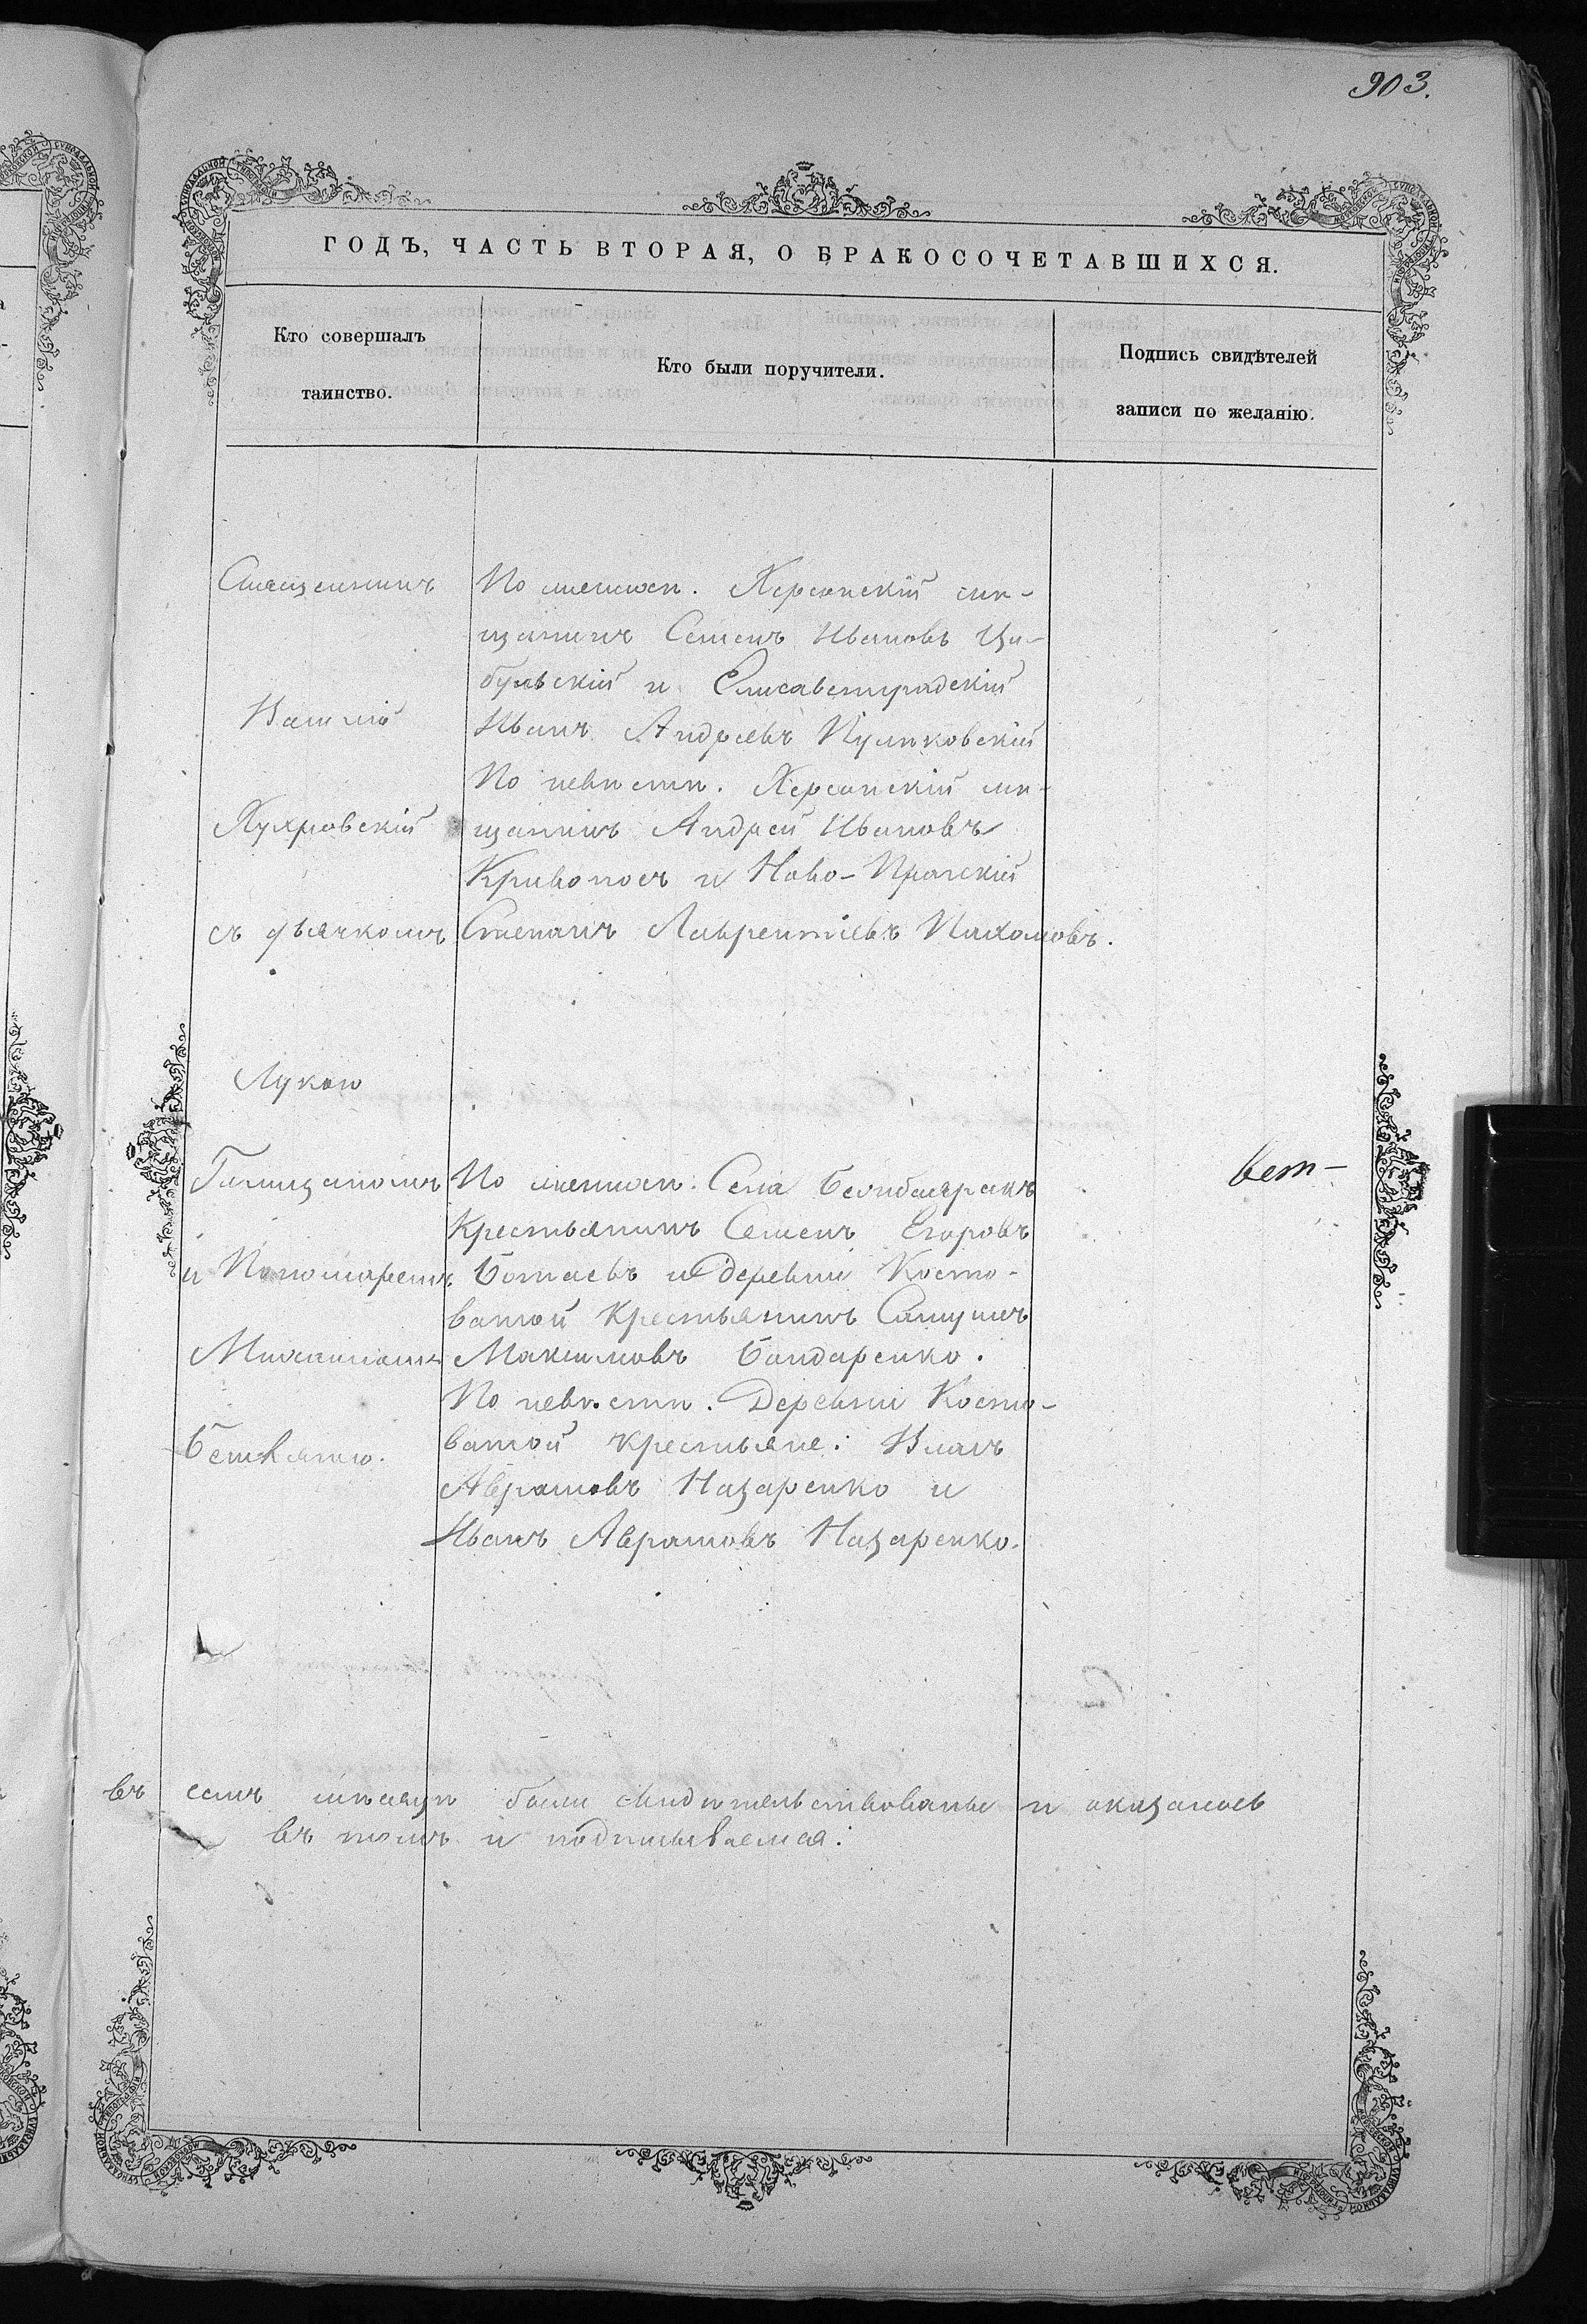 903.
ГОДЪ, ЧАСТЬ ВТОРАЯ, О БРАКОСОЧЕТАВШИХСЯ.
Кто совершалъ
таинство.
Кто были поручители.
Подпись свидѣтелей
записи по желанію.
Священникъ
Василій
съ дьячкомъ
Лукою
и Пономаремъ
По женихѣ. Херсонскій мѣ-
щанинъ Семенъ Ивановъ Цы-
бульскій и Елисаветградскій
Иванъ Андреевъ Куликовскій
По невѣстѣ. Херсонскій мѣ-
щанинъ Андрей Ивановъ
Кривоносъ и Ново-Пражскій
Степанъ Лаврентіевъ Пахомовъ.
По женихѣ. Села
Крестьянинъ Семенъ Егоровъ
и деревни Косто-
ватой Крестьянинъ
Максимовъ Бондаренко.
По невѣстѣ. Деревни Косто-
ватой крестьяне: Власъ
Аврамовъ Назаренко и
Иванъ Аврамовъ Назаренко.
въ семъ мѣсяцѣ были свидѣтельствованы и оказались
въ томъ и подписываемся: